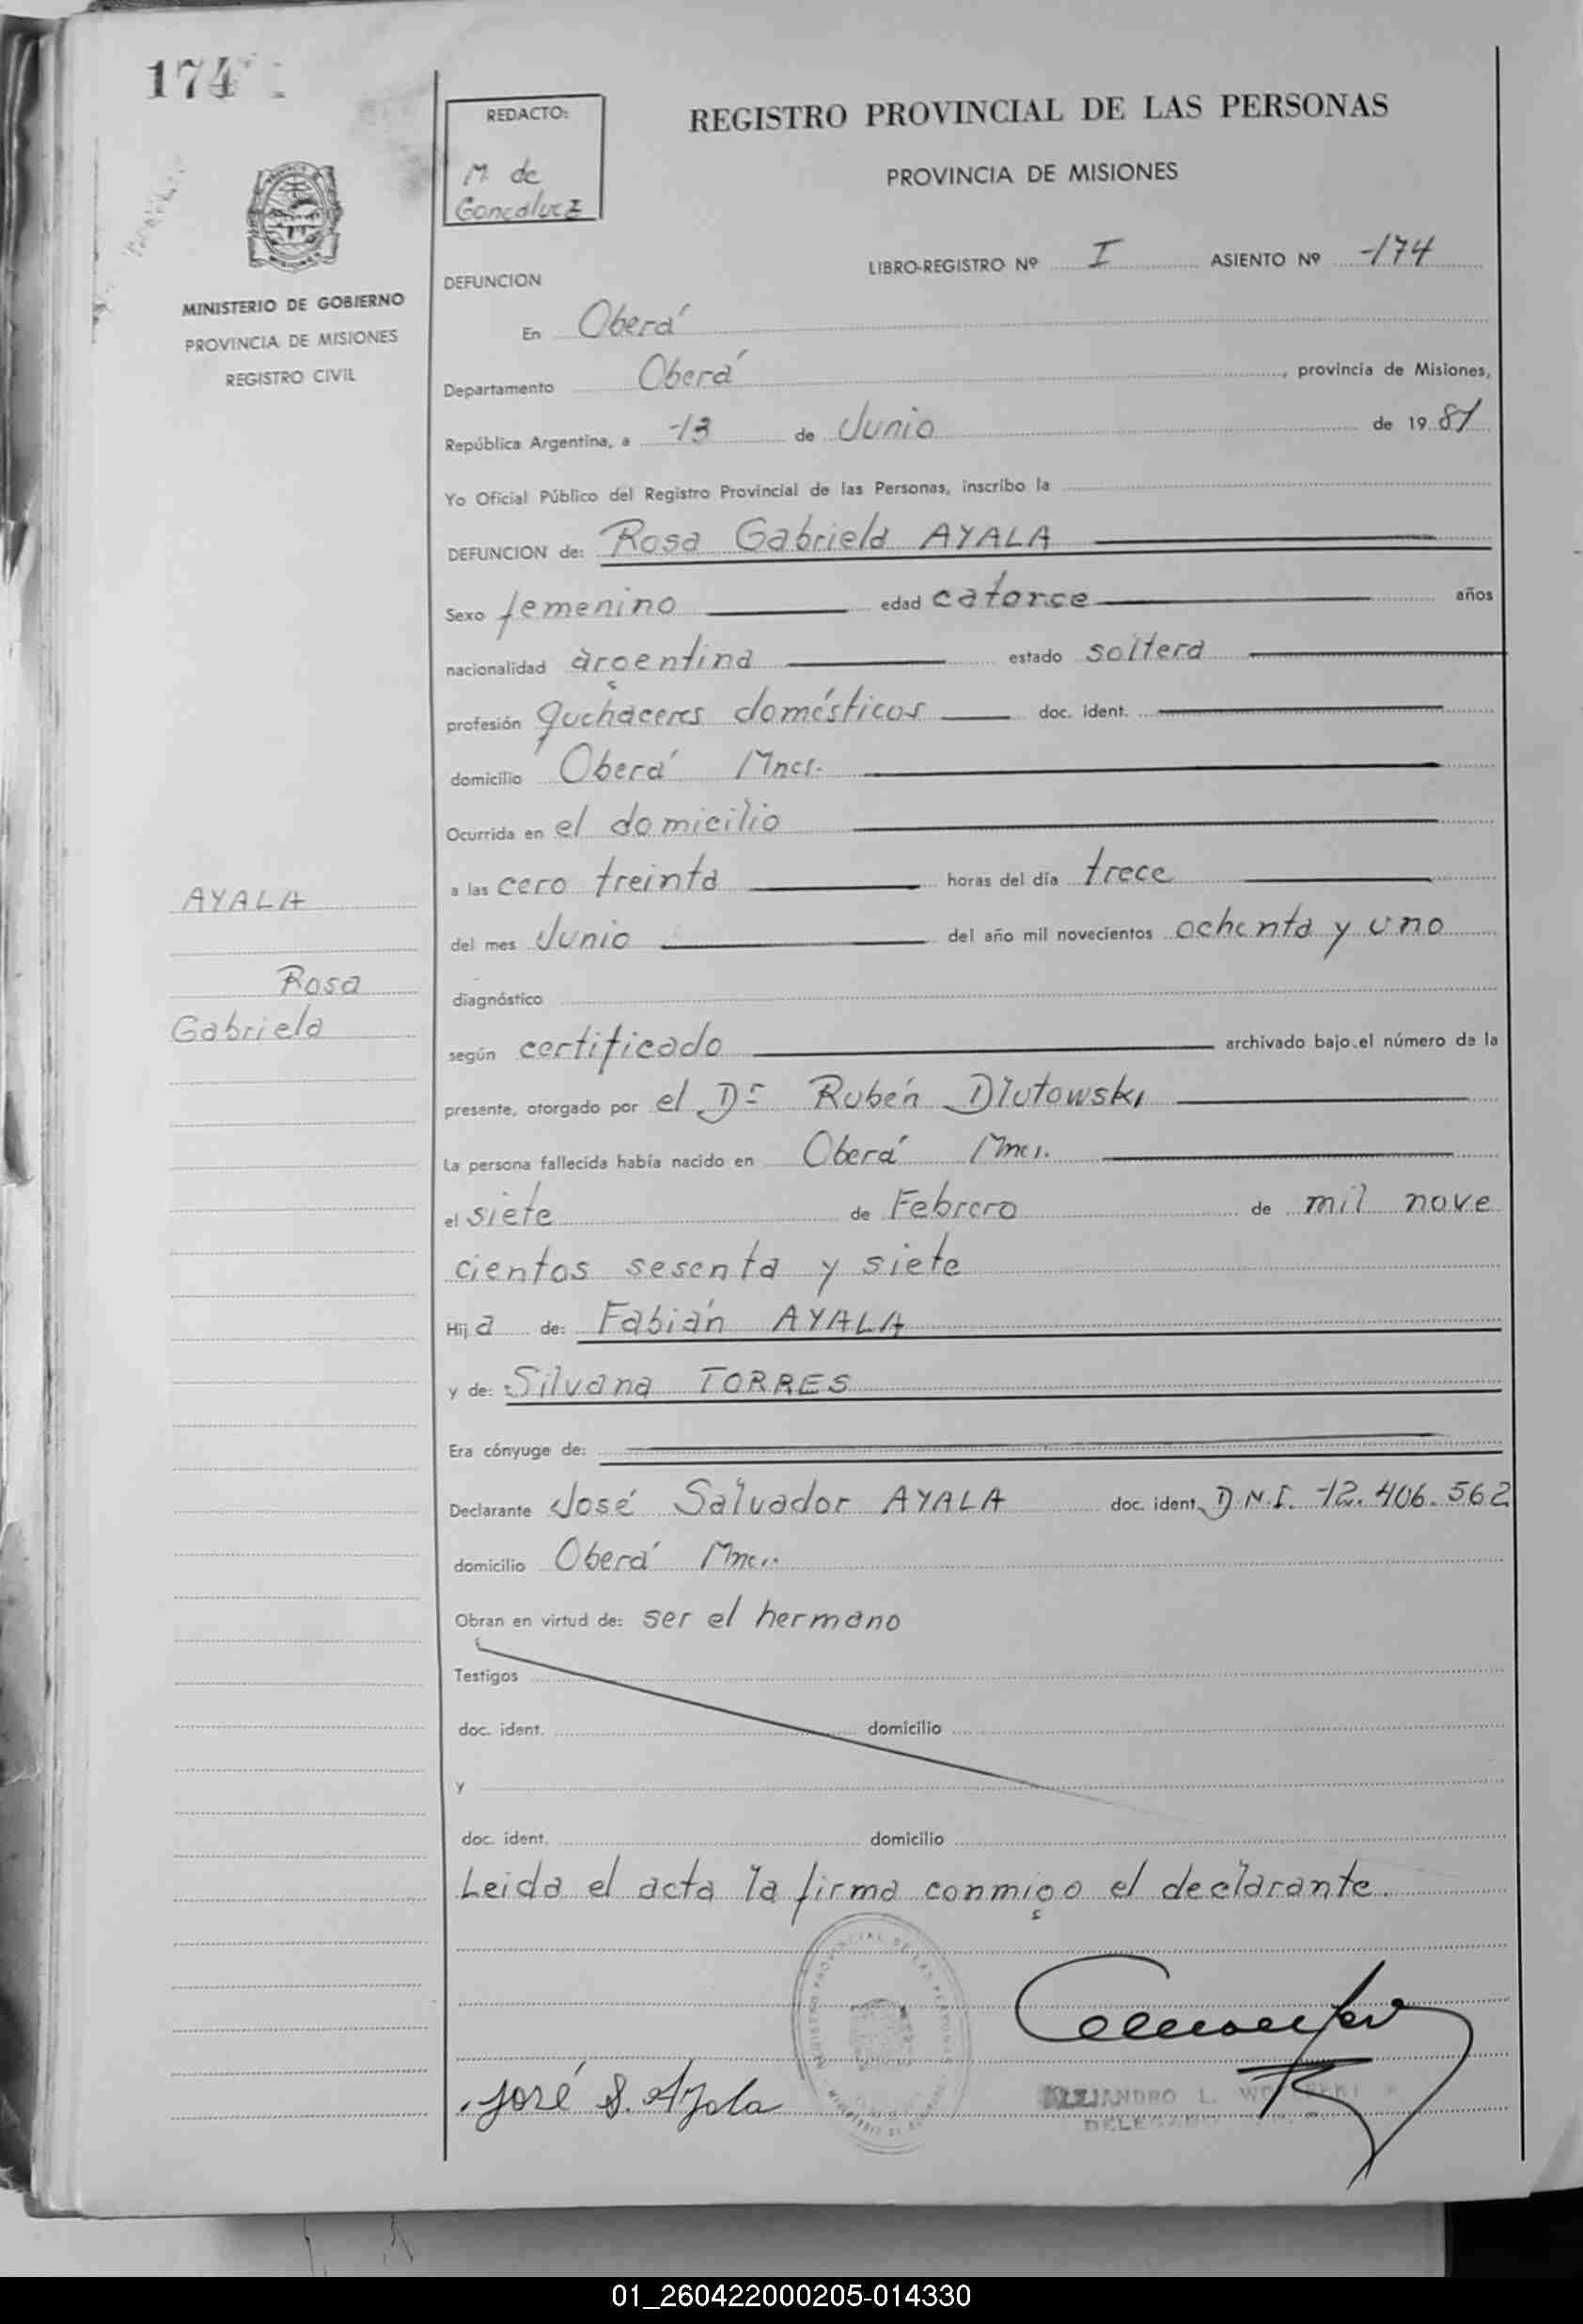 174
REDACTO:
M. de
Goncalvez
REGISTRO PROVINCIAL DE LAS PERSONAS
PROVINCIA DE MISIONES
LIBRO-REGISTRO Nº I ASIENTO Nº 174
MINISTERIO DE GOBIERNO
PROVINCIA DE MISIONES
REGISTRO CIVIL
DEFUNCION
En Oberá
Departamento Oberá, provincia de Misiones,
República Argentina, a 13 de Junio de 1981
Yo Oficial Público del Registro Provincial de las Personas, inscribo la
DEFUNCION de: Rosa Gabriela AYALA
Sexo femenino edad catorce años
nacionalidad argentina estado soltera
profesión quehaceres domésticos doc. ident.
domicilio Oberá Mnes.
Ocurrida en el domicilio
a las cero treinta horas del día trece
del mes Junio del año mil novecientos ochenta y uno
AYALA
Rosa
Gabriela
diagnóstico
según certificado archivado bajo el número de la
presente, otorgado por el Dr Rubén Dlutowski
La persona fallecida había nacido en Oberá Mnes.
el siete de Febrero de mil nove
cientos sesenta y siete
Hija de: Fabián AYALA
y de: Silvana TORRES
Era cónyuge de:
Declarante José Salvador AYALA doc. ident. D.N.I. 12.406.562
domicilio Oberá Mnes.
Obran en virtud de: ser el hermano
Testigos
doc. ident. domicilio
y
doc. ident. domicilio
Leida el acta la firma conmigo el declarante.
José S. Ayala
ALEJANDRO L.
01_260422000205-014330